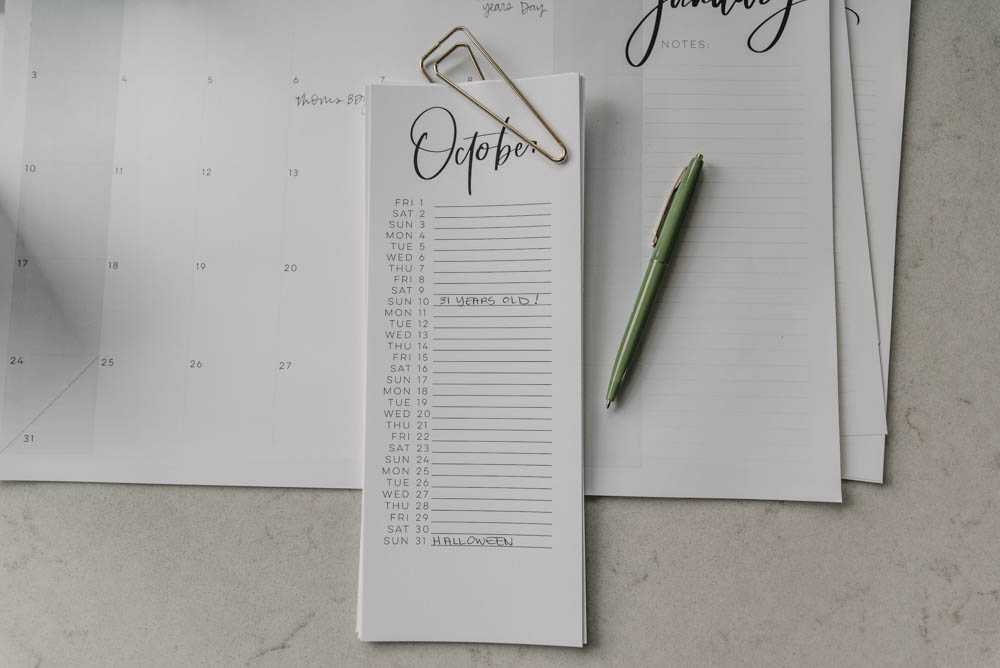 years Day
January
NOTES:
3 4 5 6 7 8
Thoms BD
10 11 12 13
17 18 19 20
24 25 26 27
31
October
FRI 1
SAT 2
SUN 3
MON 4
TUE 5
WED 6
THU 7
FRI 8
SAT 9
SUN 10 31 YEARS OLD!
MON 11
TUE 12
WED 13
THU 14
FRI 15
SAT 16
SUN 17
MON 18
TUE 19
WED 20
THU 21
FRI 22
SAT 23
SUN 24
MON 25
TUE 26
WED 27
THU 28
FRI 29
SAT 30
SUN 31 HALLOWEEN